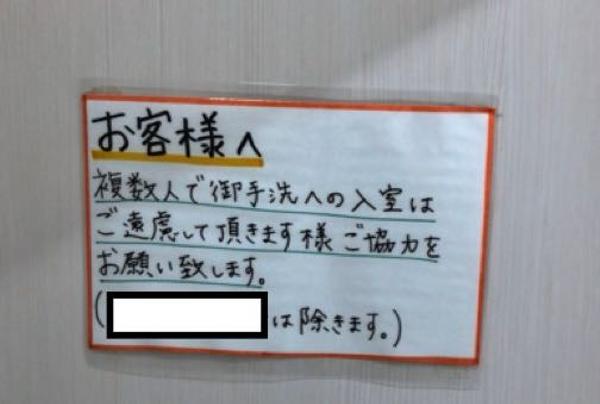 お客様へ
複数人で御手洗への入室は
ご遠慮して頂きます様ご協力を
お願い致します。
(は除きます。)